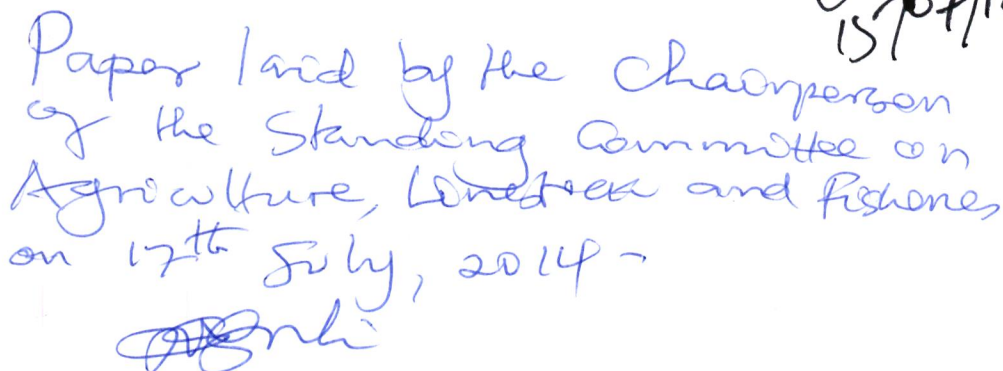 Paper laid by the Chairperson
of the Standing Committee on
Agriculture, Livestock and Fisheries
on 17th July, 2014 -